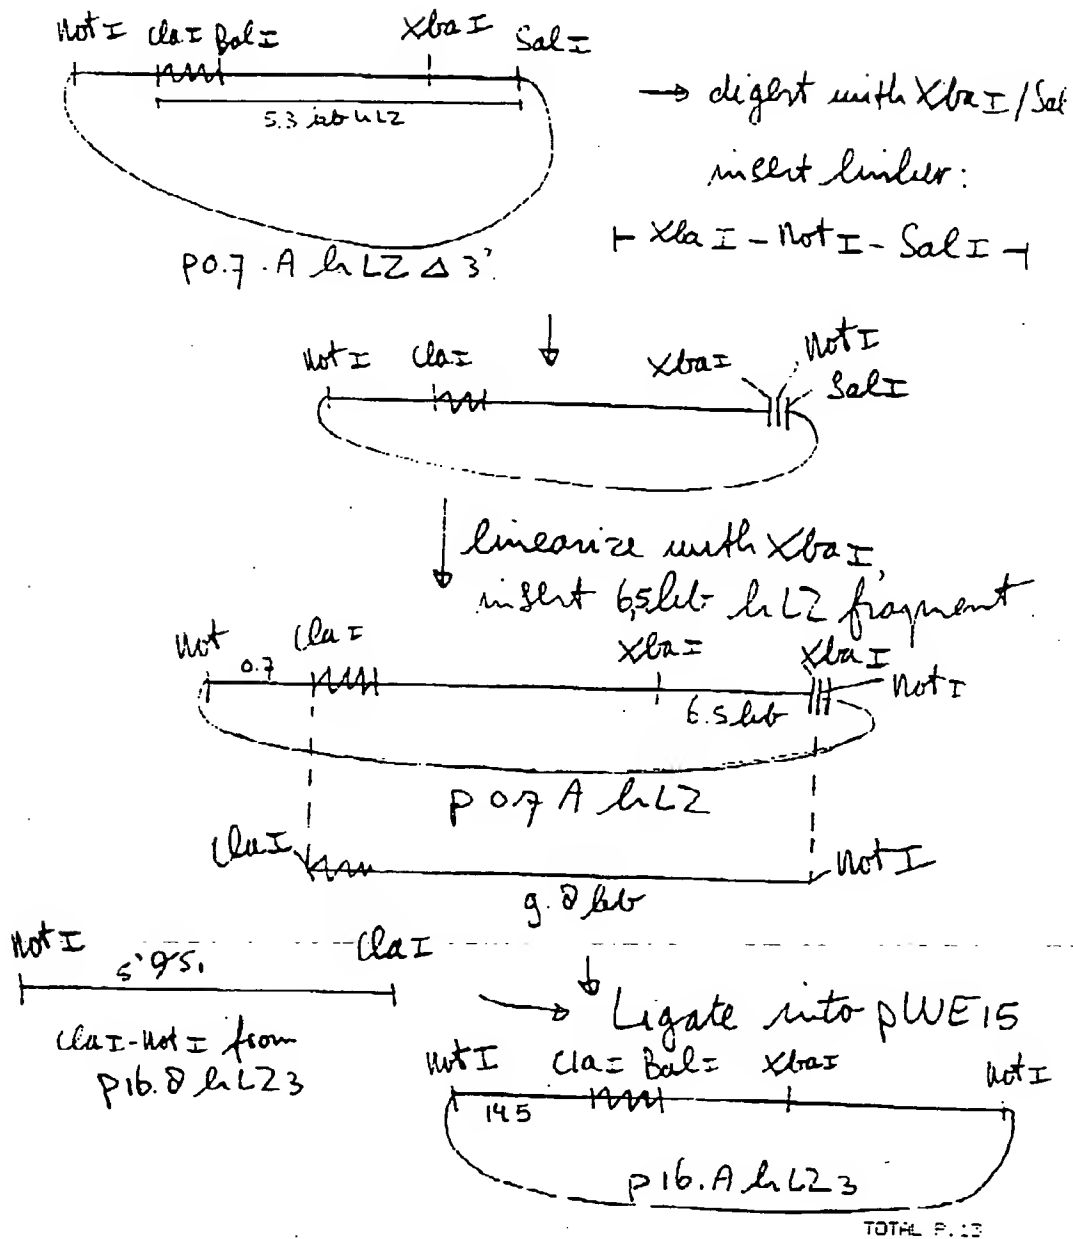 Not I Cla I Bal I Xba I Sal I
5.3 kb hLZ
→ digest with Xba I / Sal
insert linker:
⊢ Xba I - Not I - Sal I ⊣
p0.7. A hLZ Δ 3'
Not I Cla I Xba I Not I
Sal I
linearize with Xba I,
insert 6,5 kb hLZ fragment
Not Cla I Xba I Xba I
0.7 Not I
6.5 kb
p 0.7 A hLZ
Cla I Not I
9.8 kb
Not I Cla I
5'
Cla I-Not I from
p16.8 hLZ3
→ Ligate into pWE15
Not I Cla I Bal I Xba I Not I
14.5
p 16. A hLZ3
TOTAL P.13